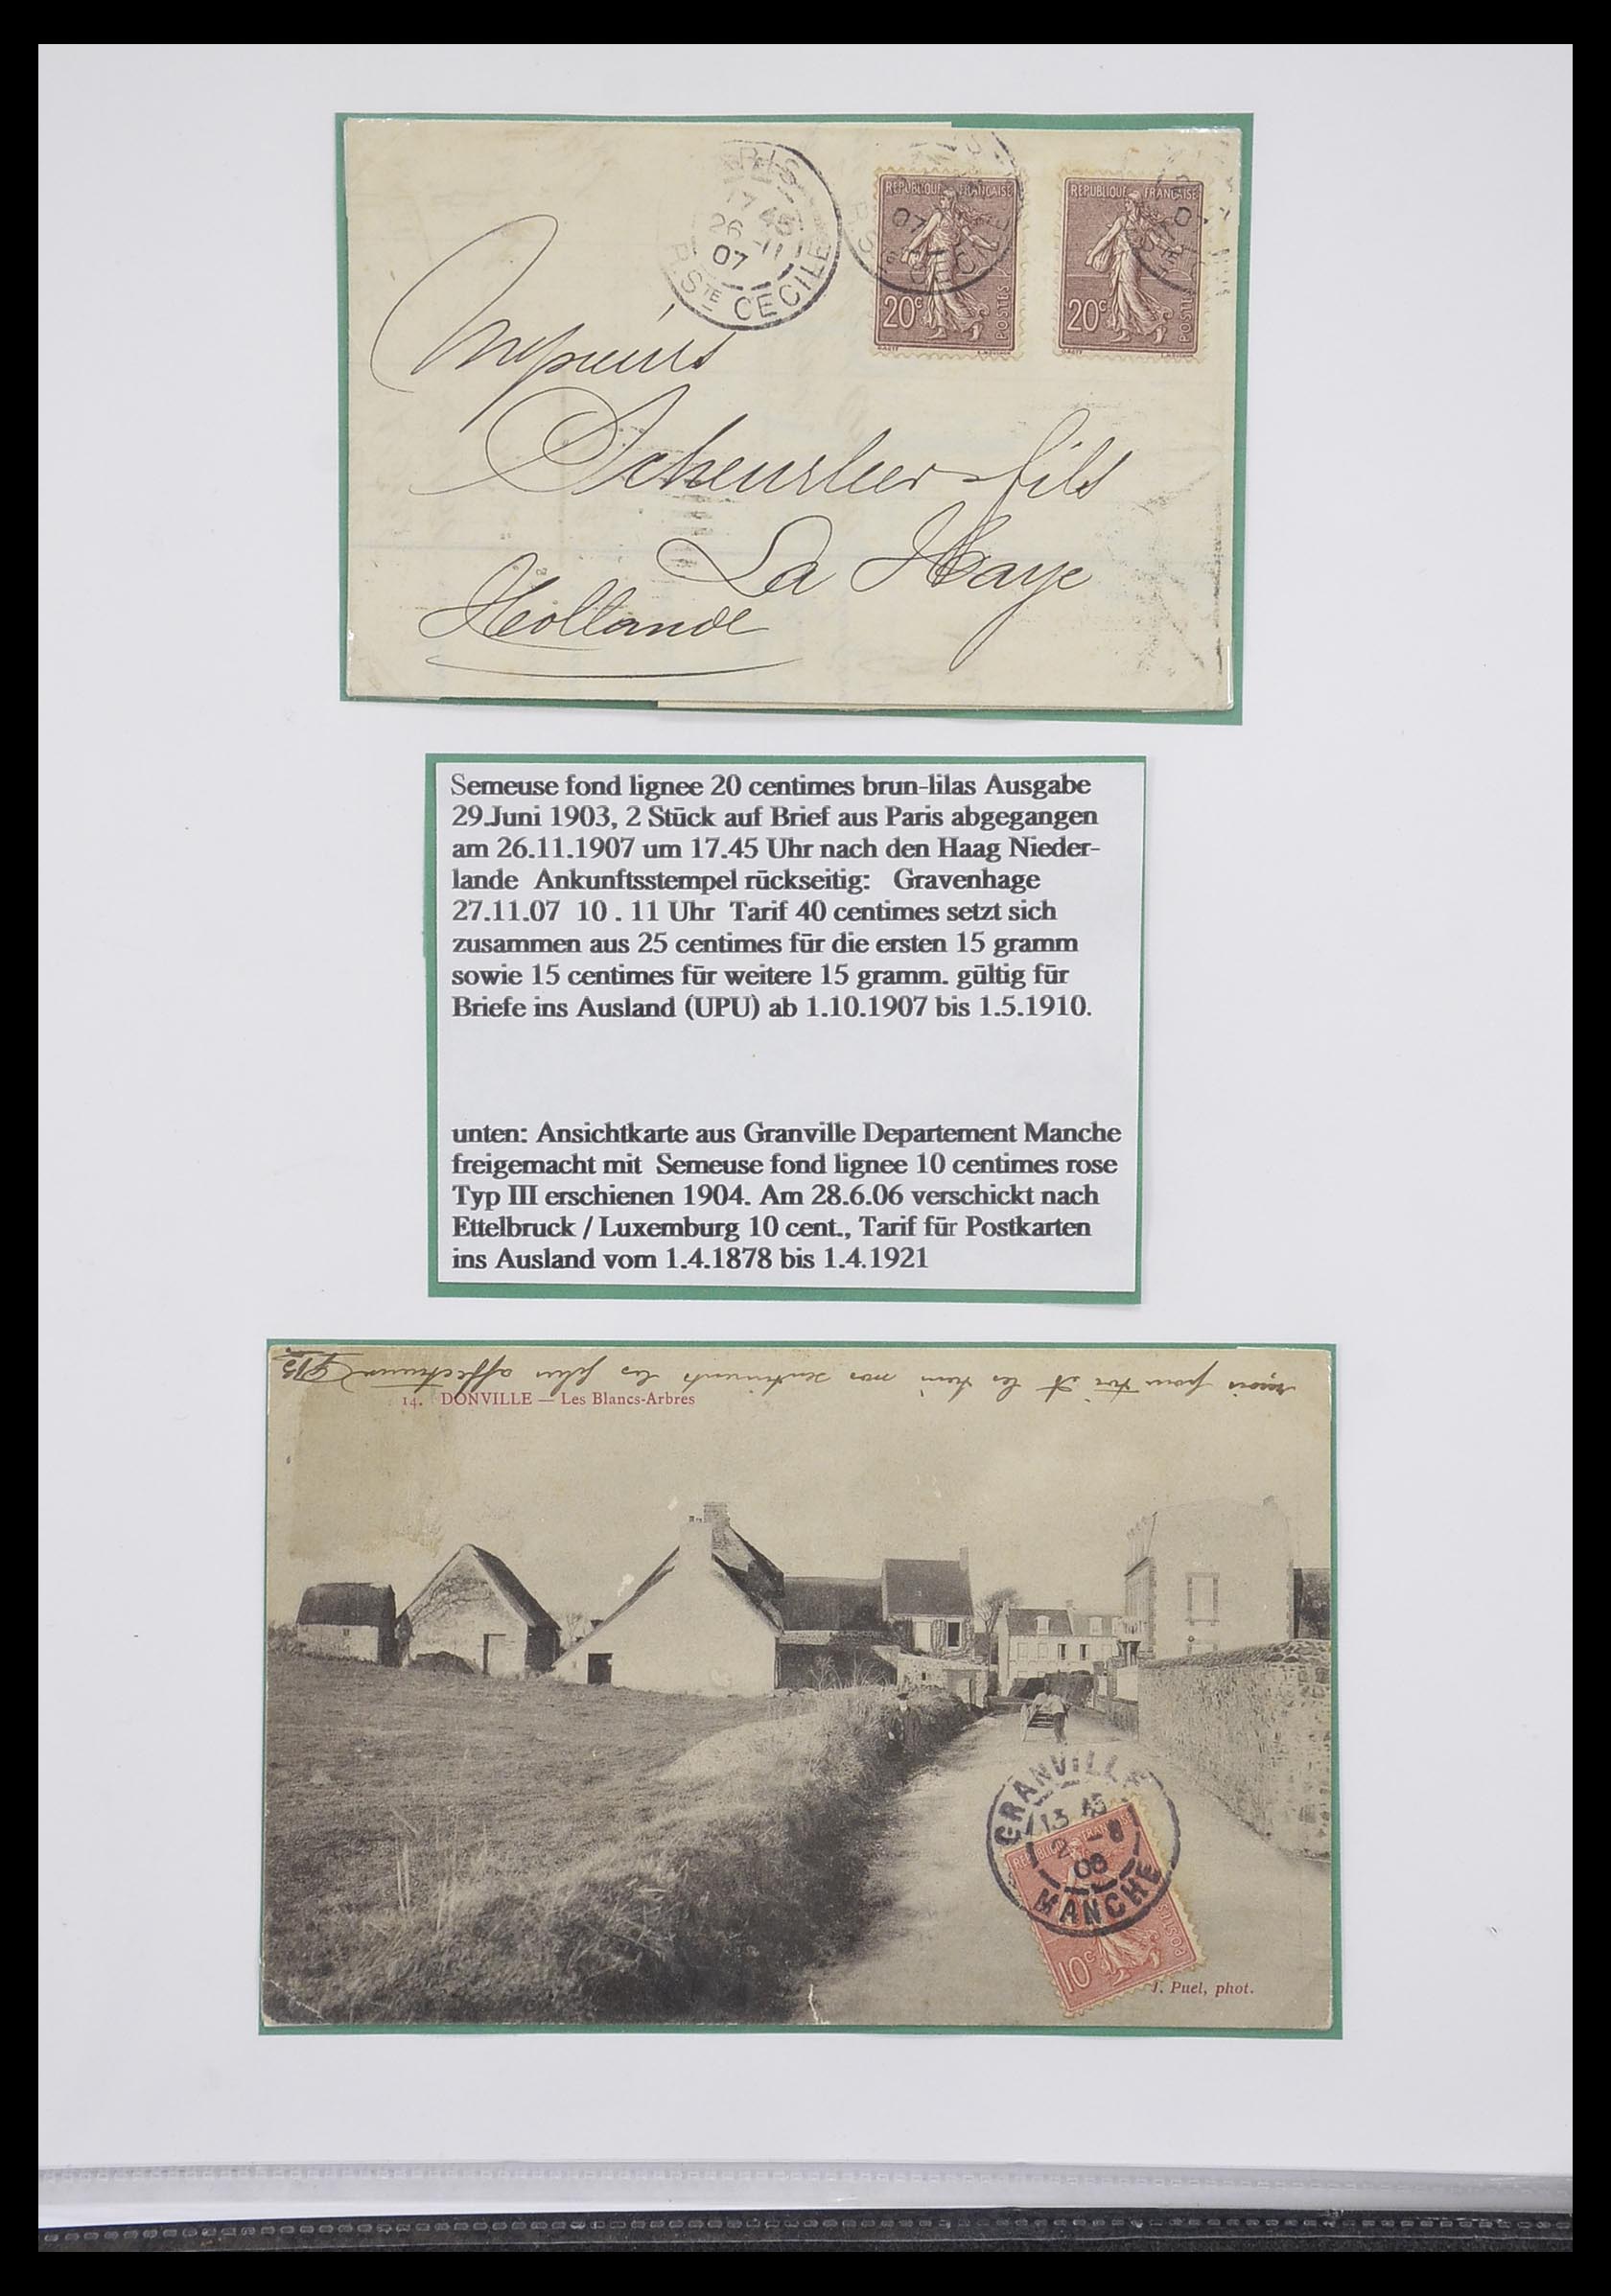 PARIS
17 45
26 -11
07
R. STE CECILE
07
STE CECILE
07
REPUBLIQUE FRANÇAISE
20c
POSTES
REPUBLIQUE FRANÇAISE
20c
POSTES
Messieurs
Scheurleer & fils
La Haye
Hollande
Semeuse fond lignee 20 centimes brun-lilas Ausgabe
29.Juni 1903, 2 Stück auf Brief aus Paris abgegangen
am 26.11.1907 um 17.45 Uhr nach den Haag Nieder-
lande Ankunftsstempel rückseitig: Gravenhage
27.11.07 10 . 11 Uhr Tarif 40 centimes setzt sich
zusammen aus 25 centimes für die ersten 15 gramm
sowie 15 centimes für weitere 15 gramm. gültig für
Briefe ins Ausland (UPU) ab 1.10.1907 bis 1.5.1910.
unten: Ansichtkarte aus Granville Departement Manche
freigemacht mit Semeuse fond lignee 10 centimes rose
Typ III erschienen 1904. Am 28.6.06 verschickt nach
Ettelbruck / Luxemburg 10 cent., Tarif für Postkarten
ins Ausland vom 1.4.1878 bis 1.4.1921
reçois pour toi et les tiens mes sentiments les plus affectueux
14. DONVILLE — Les Blancs-Arbres
GRANVILLE
13 45
2 -8
06
MANCHE
REPUBLIQUE FRANÇAISE
10c
POSTES
J. Puel, phot.